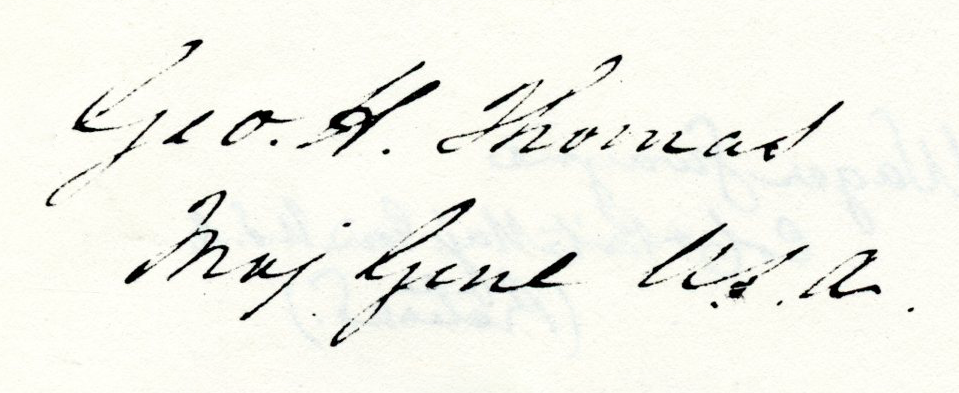 Geo. H. Thomas
Maj. Genl U.S.A.